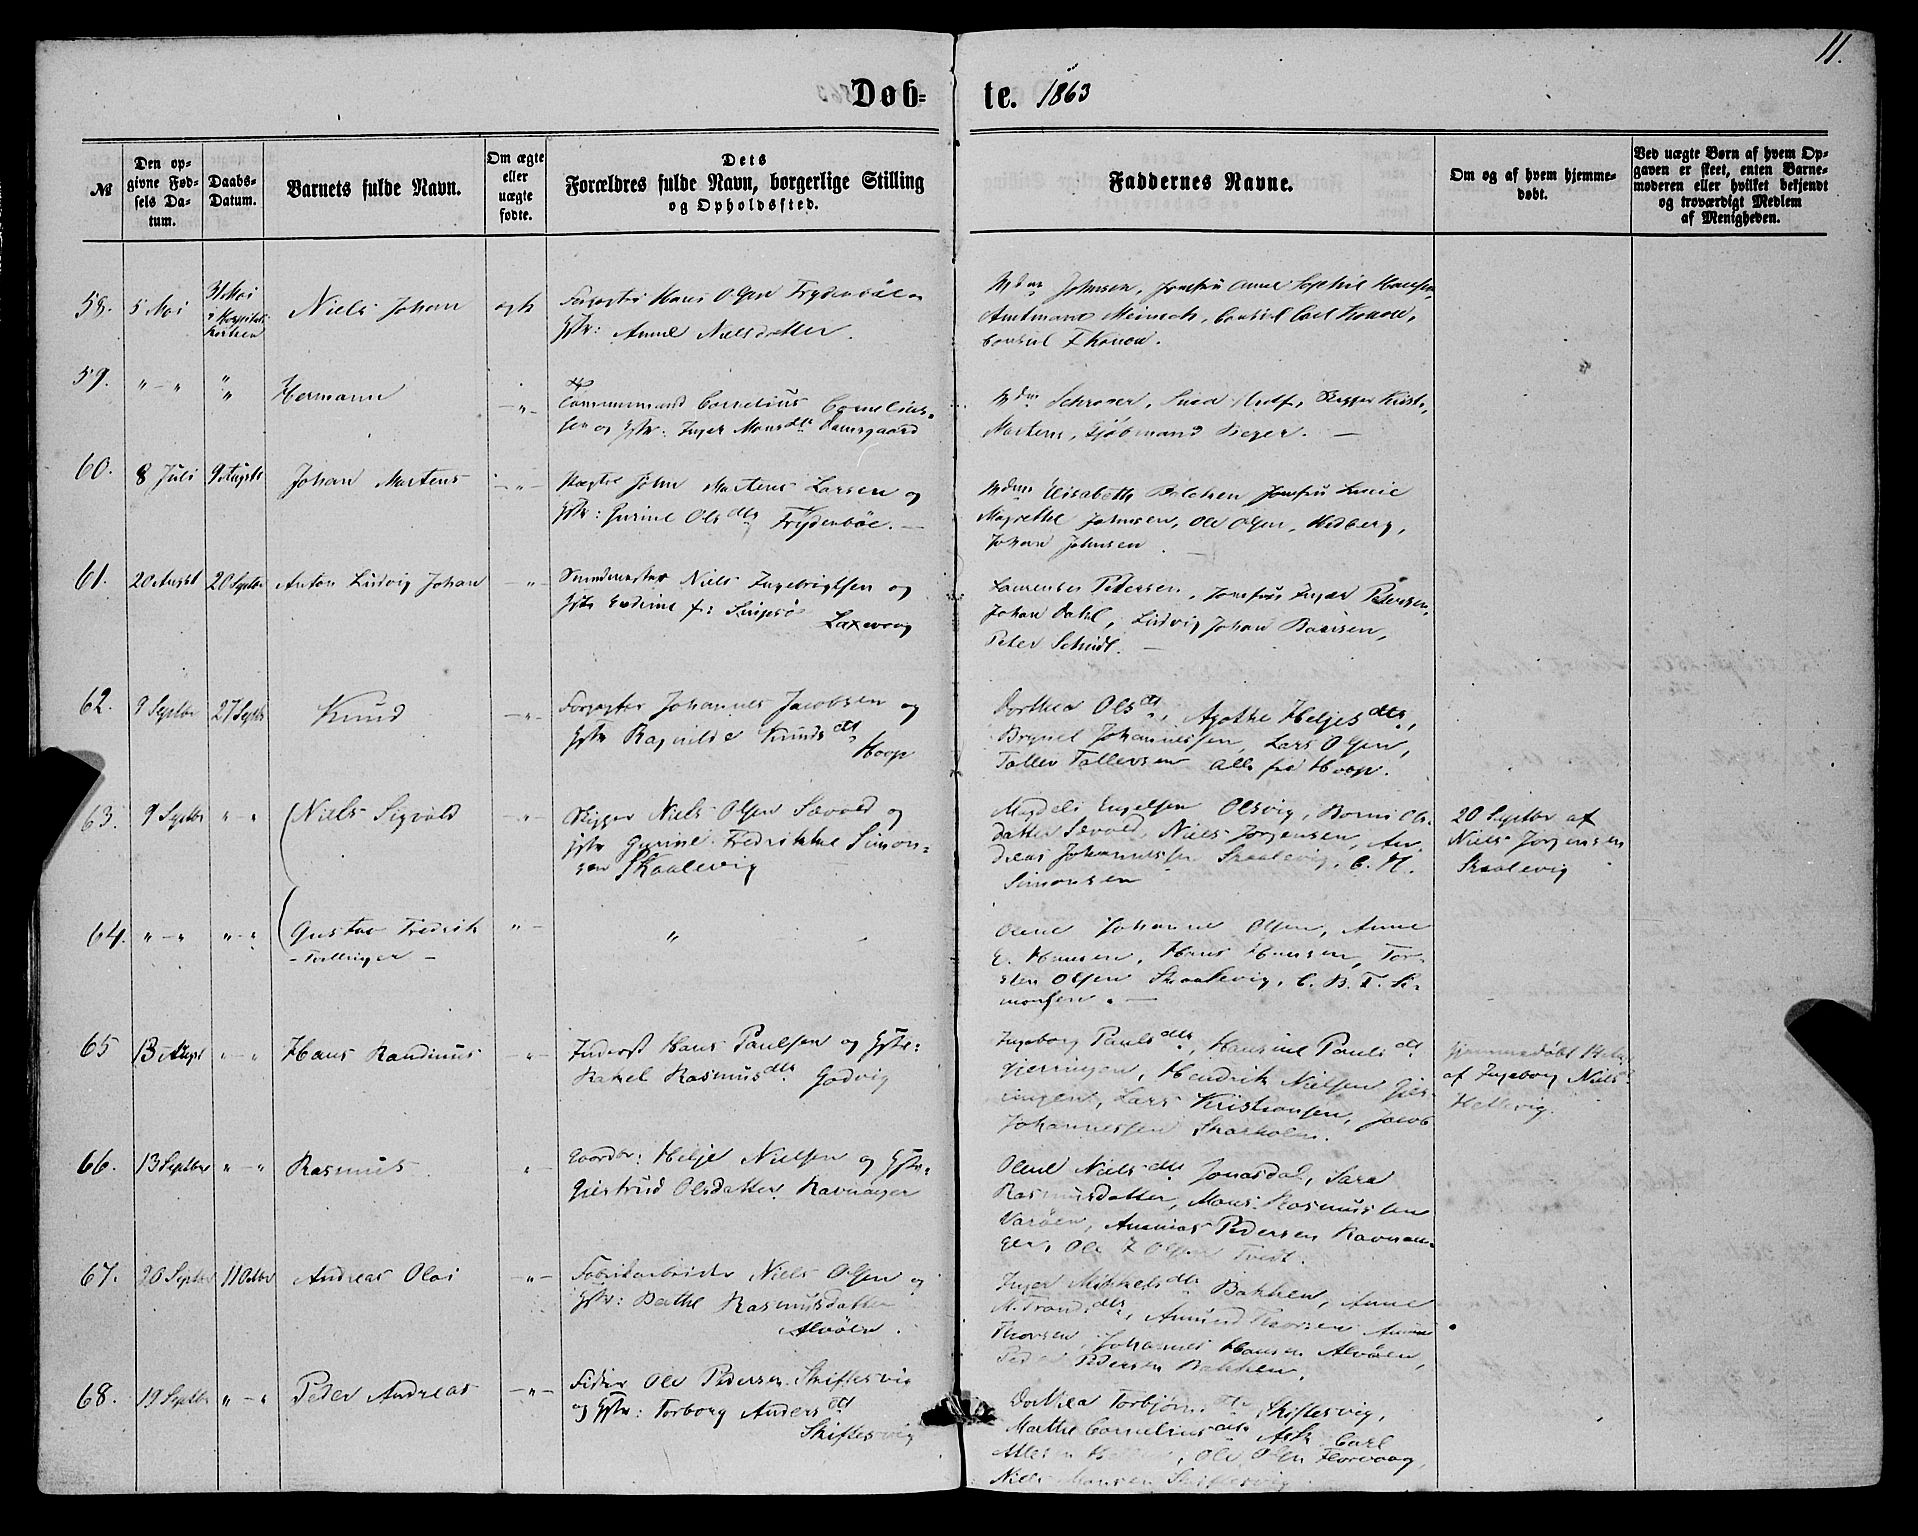 11.
Døb- te. 1863
№
Den op-
givne Fød-
sels Da-
tum.
Daabs-
Datum.
Barnets fulde Navn.
Om ægte
eller
uægte
fødte.
Dets
Forældres fulde Navn, borgerlige Stilling
og Opholdssted.
Faddernes Navne.
Om og af hvem hjemme-
døbt.
Ved uægte Børn af hvem Op-
gaven er skeet, enten Barne-
moderen eller hvilket bekjendt
og troværdigt Medlem
af Menigheden.
58.
5 Mai
31 Mai
Niels Johan
ægte
Hans Olsen Frydenbøe og
Hstr: Anne Nielsdatter.
Johnsen, Jomfru Anne Sophie Hansen,
Amtmand Meinich, Consul Carl Konow,
Consul F Konow.
59.
" - "
"
"
Hermann
- " -
Tømmermand Cornelius Cornelius-
sen og Hstr: Inger Monsdtr Damsgaard
Schrøder,
Martens, Kjøbmand Beyer. -
60.
8 Juli
9 Augst
Johan Martens
- " -
John Martens Larsen og
Hstr: Gurine Olsdtr Frydenbøe. -
Elisabeth Jomfru Lucie
Magrethe Johnsen, Ole Olsen, Hedberg,
Johan Johnsen. -
61.
20 Augst
20 Septbr
Anton Ludvig Johan
- " -
Niels Ingebrigtsen og
Hstr f:
Laxevaag
Laurentse Pedersen, Jomfru Inger Pedersen,
Johan Dahl, Ludvig Johan
Peter -
62.
9 Septbr
27 Septbr
Knud
- " -
Johannes Jacobsen og
Hstr Ragnilde Knudsdtr
Hoop
Dorthea Olsdtr, Agathe Heljesdtr,
Brynel Johannessen, Lars Olsen,
Tollev Tollevsen alle fra Hoop.
63.
9 Septbr
" - "
(Niels Sigvald
- " -
Skipper Niels Olsen Sævold og
Hstr Gurine Fredrikke Simon-
sen Skaalevig
Magdeli Engelsen Olsvig, Ols-
datter Sævold, Niels Jørgensen, An-
dreas Johannessen Skaalevig, C. M.
Simonsen
20 Septbr af
Niels Jørgensen
Skaalevig
64.
" - "
" - "
(Gustav Fredrik
- Tvillinger -
" -
"
Olene Johanne Olsen, Anne
E. Hansen, Hans Hansen, Tor-
sten Olsen Skaalevig, C. B. F. Si-
monsen. -
65
13 Augst
" - "
Hans Randinus
- " -
Inderst Hans Paulsen og Hstr:
Rakel Rasmusdtr Godvig
Ingeborg Paulsdtr, Hansine Paulsdtr
Gjerringen, Hendrik Nielsen Gjer-
ringen, Lars Kristiansen, Jacob
Johannessen
hjemmedøbt
af Ingeborg Nielsdtr
Hettevig.
66.
13 Septbr
" - "
Rasmus
"
Gaardbr: Helje Nielsen og Hstr:
Giertrud Olsdatter Ravnanger
Olene Nielsdtr Jonasdal, Sara
Rasmusdatter, Mons Rasmussen
Varøen, Ananias Pedersen Ravnan-
ger, Ole Z Olsen Tvedt.
67.
20 Septbr
11 Octbr
Andreas Olai
- " -
Fabrikarbeider Niels Olsen og
Hstr: Berthe Rasmusdatter
Alvøen.
Inger Mikkelsdtr Bakken, Anne
M. Tronsdtr, Amund Thorsen
Thorsen, Johannes Hansen Alvøen,
Peder Pedersen Bakken.
68.
19 Septbr
" - "
Peder Andreas
- " -
Ole Pedersen Skiftesvig
og Hstr: Torborg Andersdtr
Skiftesvig
Torbjørnsdtr Skiftesvig,
Marthe Corneliusdtr Ask Carl
Ole Olsen Florvaag,
Niels Hansen Skiftesvig